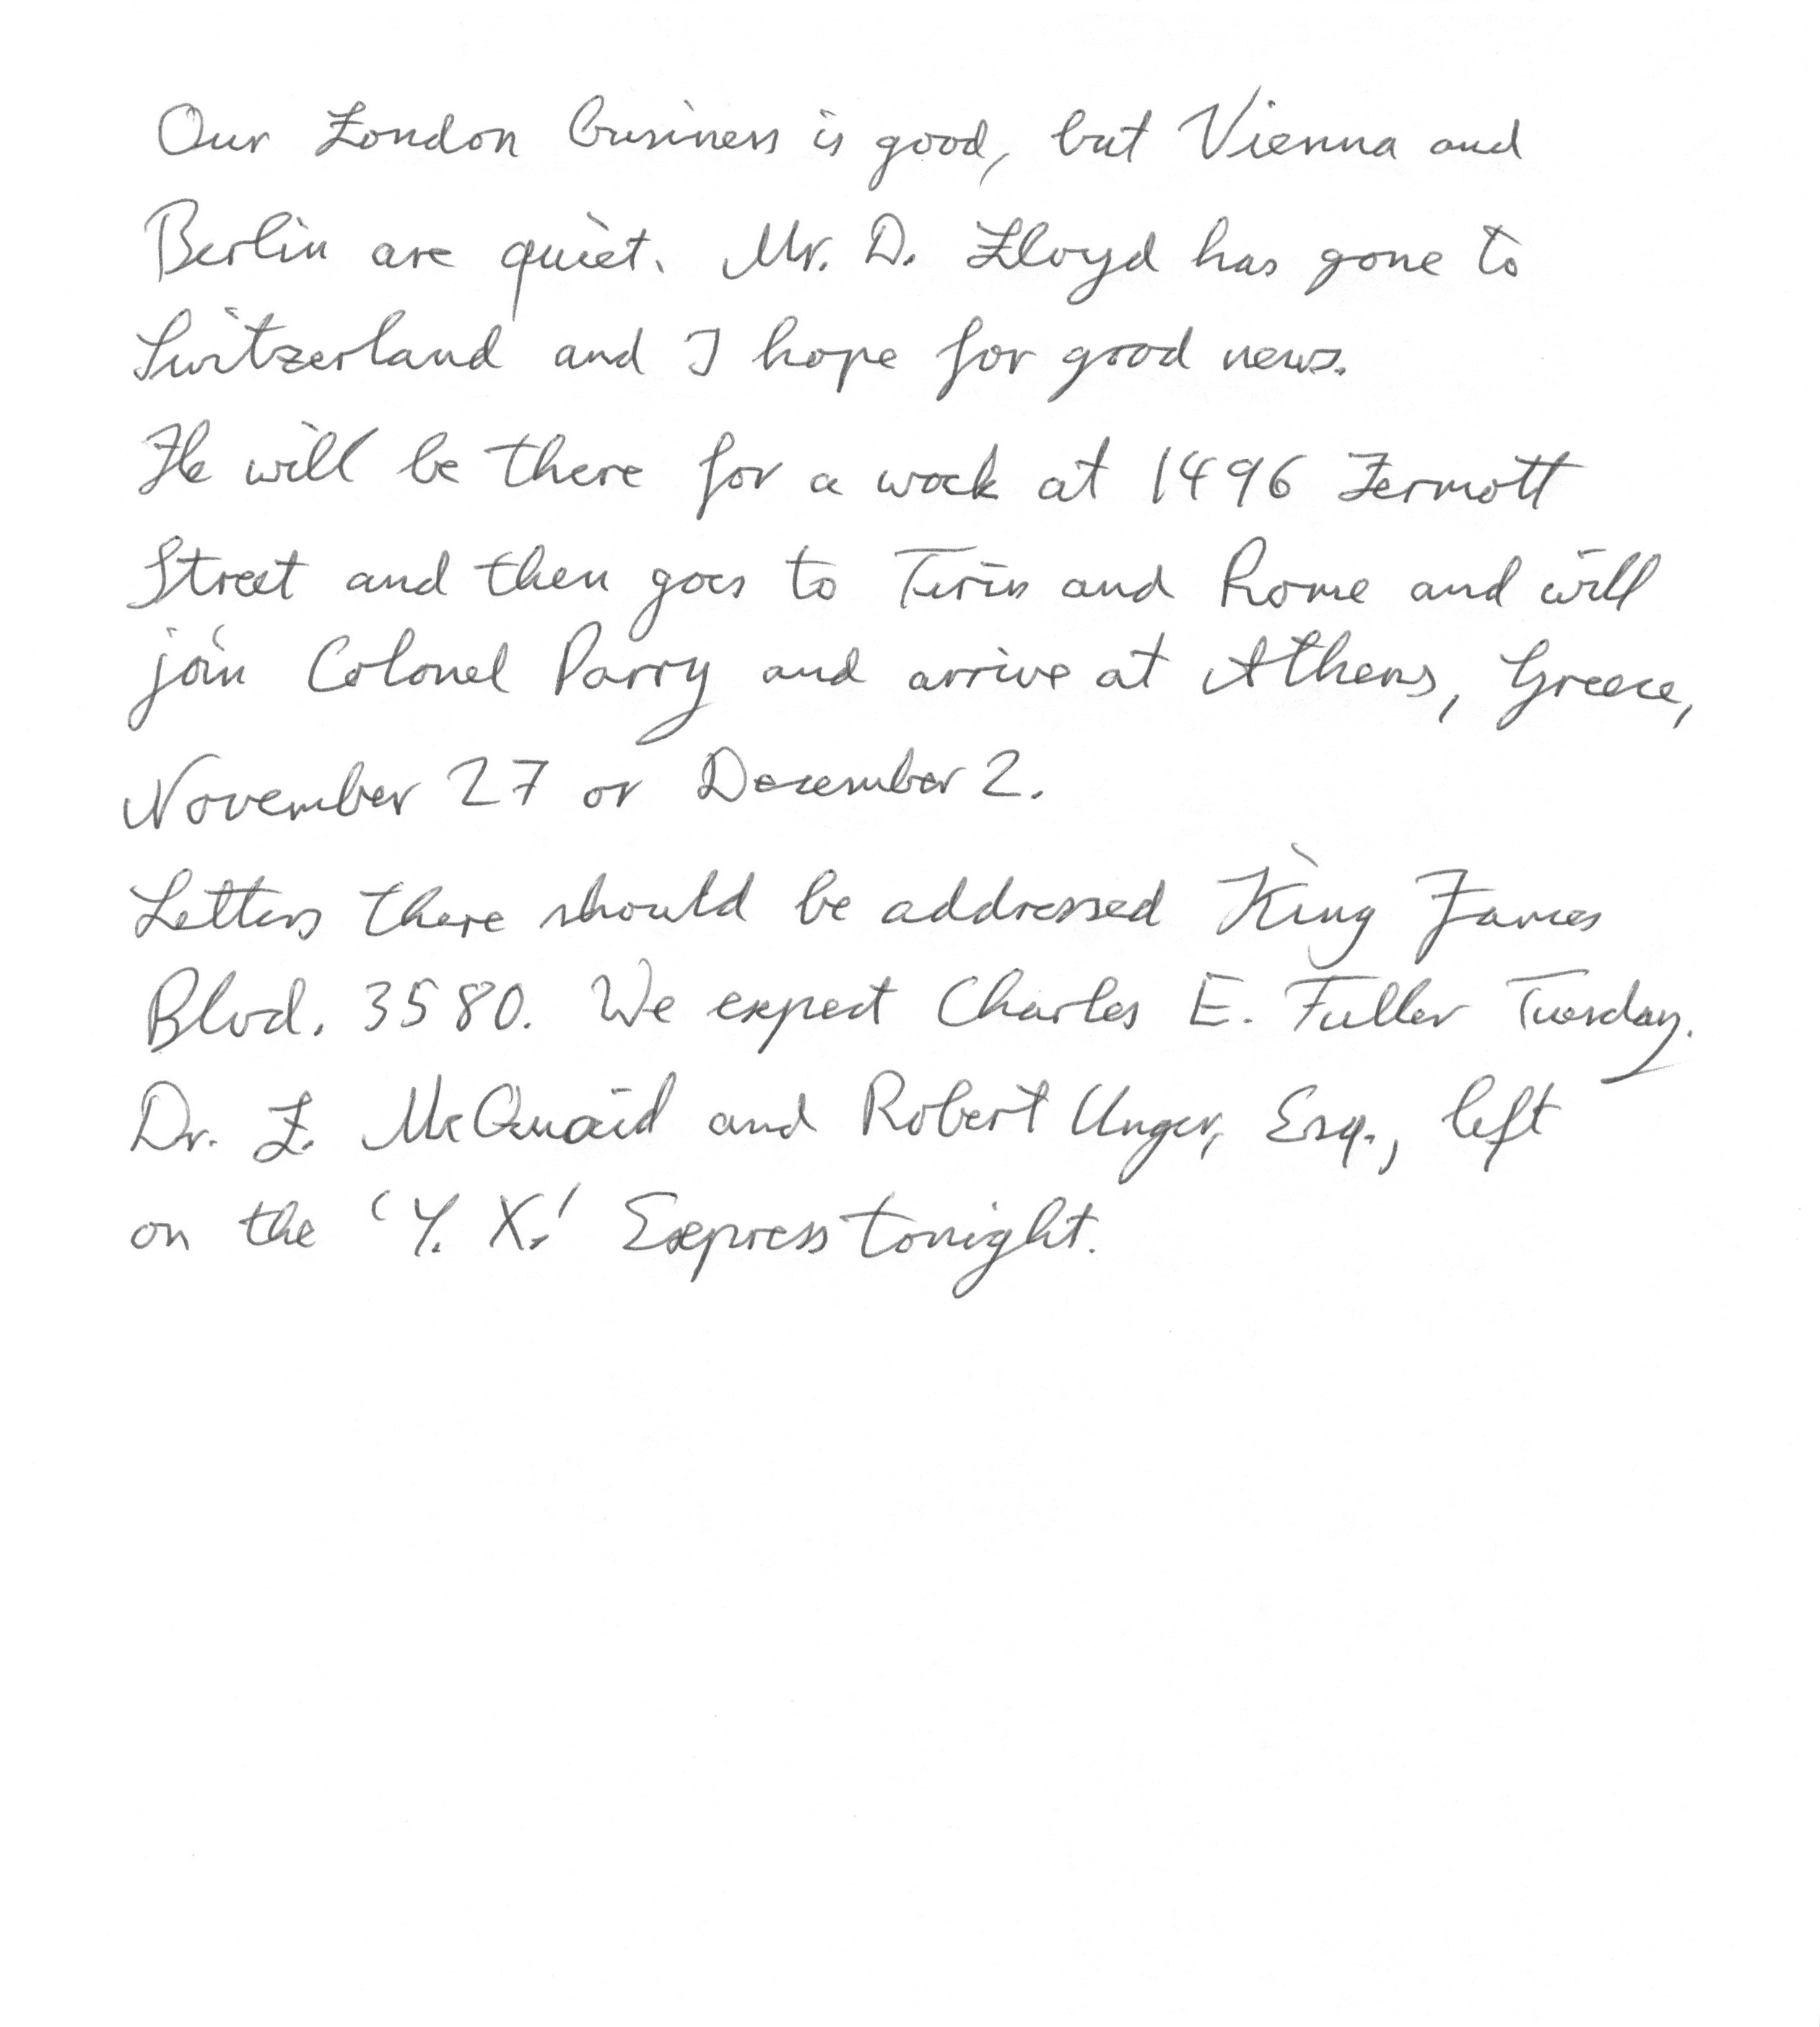 Our London business is good, but Vienna and
Berlin are quiet. Mr. D. Lloyd has gone to
Switzerland and I hope for good news.
He will be there for a week at 1496 Zermott
Street and then goes to Turin and Rome and will
join Colonel Parry and arrive at Athens, Greece,
November 27 or December 2.
Letters there should be addressed King James
Blvd. 3580. We expect Charles E. Fuller Tuesday.
Dr. L. McQuaid and Robert Unger, Esq., left
on the 'Y. X.' Express tonight.